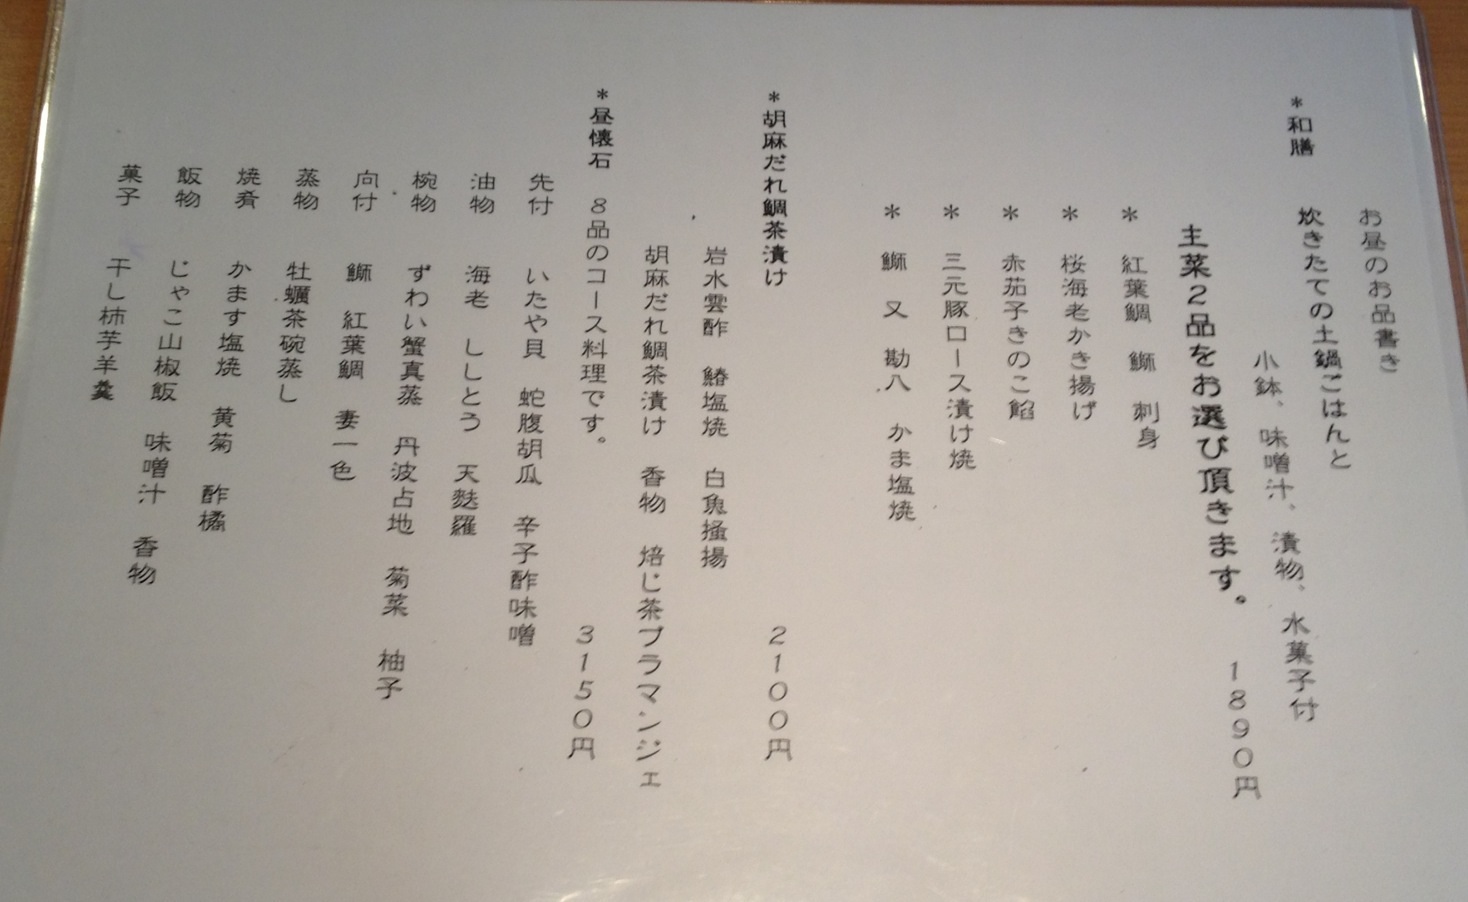 お昼のお品書き
*和膳 炊きたての土鍋ごはんと
小鉢、味噌汁、漬物、水菓子付
主菜2品をお選び頂きます。 1890円
* 紅葉鯛 鰤 刺身
* 桜海老かき揚げ
* 赤茄子きのこ餡
* 三元豚ロース漬け焼
* 鰤 又 勘八 かま塩焼
*胡麻だれ鯛茶漬け 2100円
岩水雲酢 鰆塩焼 白魚掻揚
胡麻だれ鯛茶漬け 香物 焙じ茶ブラマンジェ
*昼懐石 8品のコース料理です。 3150円
先付 いたや貝 蛇腹胡瓜 辛子酢味噌
油物 海老 ししとう 天麩羅
椀物 ずわい蟹真蒸 丹波占地 菊菜 柚子
向付 鰤 紅葉鯛 妻一色
蒸物 牡蠣茶碗蒸し
焼肴 かます塩焼 黄菊 酢橘
飯物 じゃこ山椒飯 味噌汁 香物
菓子 干し柿芋羊羹